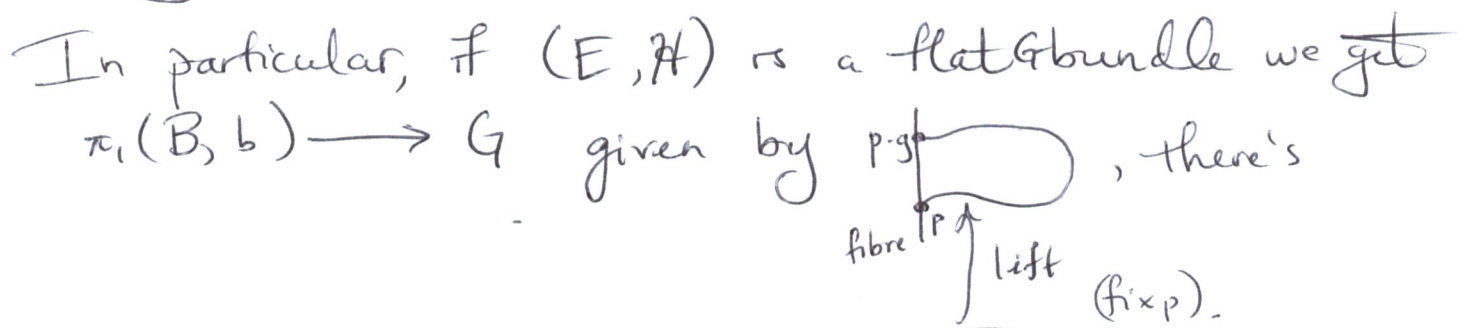 In particular, if (E, H) is a flat G bundle we get
π₁(B, b) ⟶ G given by p·g , there's
fibre p lift (fix p).